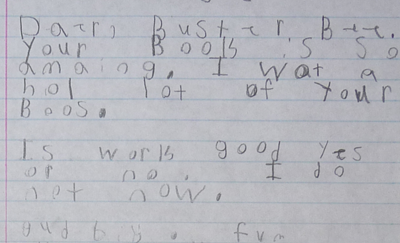 Dear, Buster. Bee.
Your Book is So
amaing. I wat a
hol lot of Your
Boos.
Is work good Yes
or no. I do
not now.